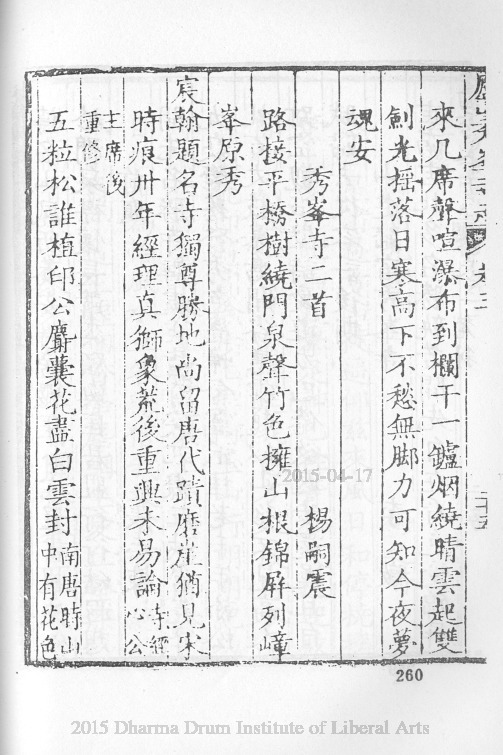 來几席聲喧瀑布到欄干一鑪烟繞晴雲起雙
劍光摇落日寒高下不愁無脚力可知今夜夢
魂安
秀峯寺二首 楊嗣震
路接平橋樹繞門泉聲竹色擁山根錦屏列嶂
峯原秀
宸翰題名寺獨尊勝地尚留唐代蹟磨崖猶見宋
時痕卅年經理真獅象荒後重興未易論寺經心公
主席後重修
五粒松誰植卬公麝囊花盡白雲封南唐時山中有花色
260
2015-04-17
2015 Dharma Drum Institute of Liberal Arts